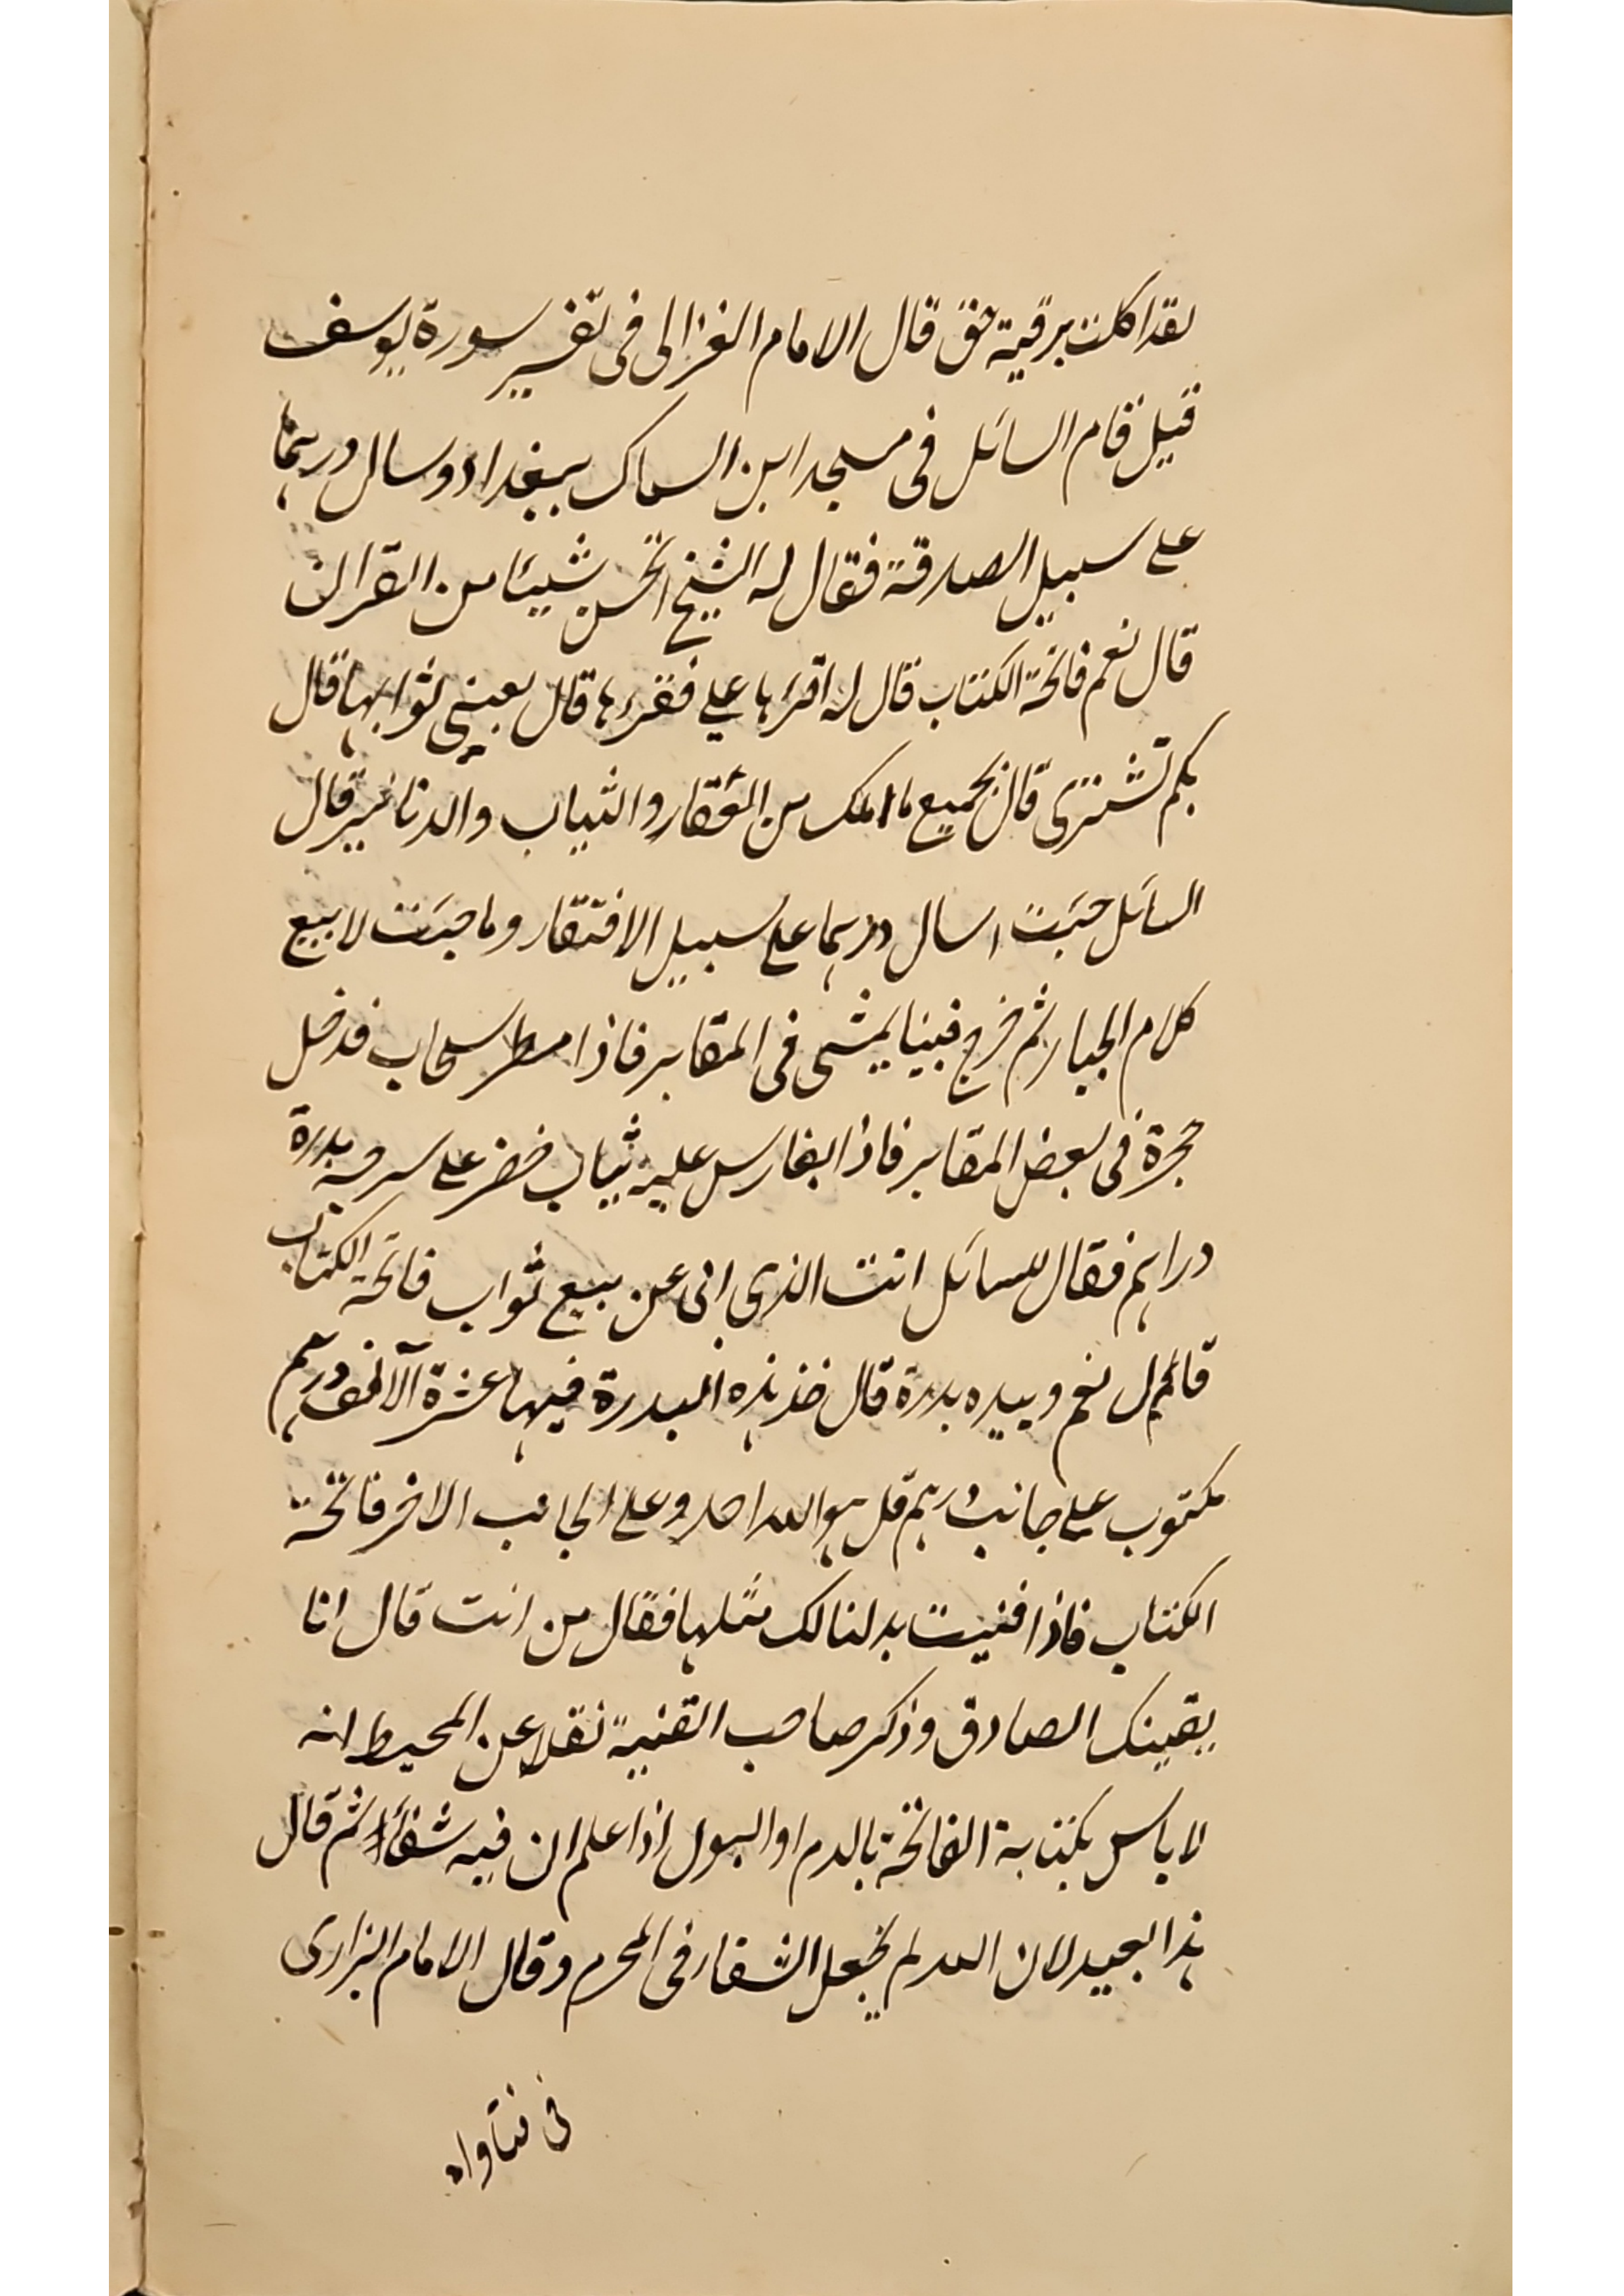 لقد اكلت برقية حق قال الامام الغزالى فى تفسير سورة يوسف
قيل قام السائل فى مسجد ابن السماك ببغداد وسال درهما
على سبيل الصدقة فقال له الشيخ اتحسن شيئا من القران
قال نعم فاتحة الكتاب قال له اقرءها على فقرءها قال بعينى ثوابها قال
بكم تشترى قال بجميع ما املك من العقار والثياب والدنانير قال
السائل جئت اسال درهما على سبيل الافتقار وما جئت لابيع
كلام الجبار ثم خرج فبينا يمشى فى المقابر فاذا مطر سحاب فدخل
حجرة فى بعض المقابر فاذا بفارس عليه ثياب خضر على سرجه بدرة
دراهم فقال للسائل انت الذى ابى عن بيع ثواب فاتحة الكتاب
قال نعم وبيده بدرة قال خذ هذه البدرة فيها عشرة آلاف درهم
مكتوب على جانب درهم قل هو الله احد وعلى الجانب الاخر فاتحة
الكتاب فاذا فنيت بدلنا لك مثلها فقال من انت قال انا
يقينك الصادق وذكر صاحب القنية نقلا عن المحيط انه
لا باس بكتابة الفاتحة بالدم او البول اذا علم ان فيه شفاء ثم قال
هذا بعيد لان الله لم يجعل الشفاء فى المحرم وقال الامام البزازى
فى فتاواه